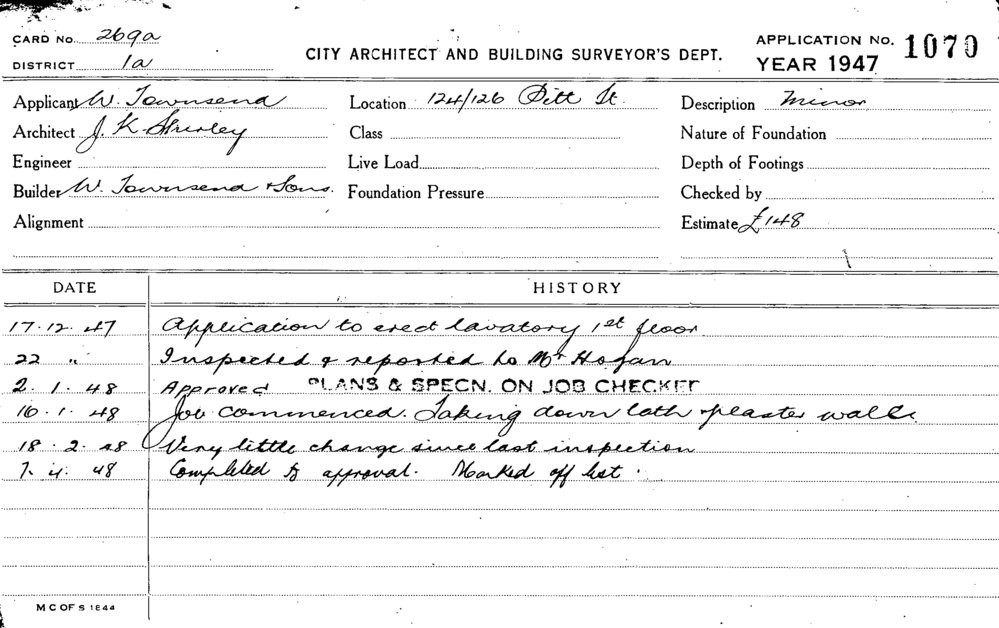 CARD No. 269a
DISTRICT 1a
CITY ARCHITECT AND BUILDING SURVEYOR'S DEPT.
APPLICATION No. 1070
YEAR 1947
Applicant W. Townsend Location 124/126 Pitt St. Description Minor
Architect J. K. Shirley Class Nature of Foundation
Engineer Live Load Depth of Footings
Builder W. Townsend & Sons. Foundation Pressure Checked by
Alignment Estimate £148
DATE HISTORY
17.12.47 Application to erect lavatory 1st floor
22 " Inspected & reported to Mr Hogan
2.1.48 Approved PLANS & SPECN. ON JOB CHECKED
16.1.48 Job commenced. Taking down lath & plaster walls.
18.2.48 Very little change since last inspection
7.4.48 Completed to approval. Marked off list.
M C OF S 1844